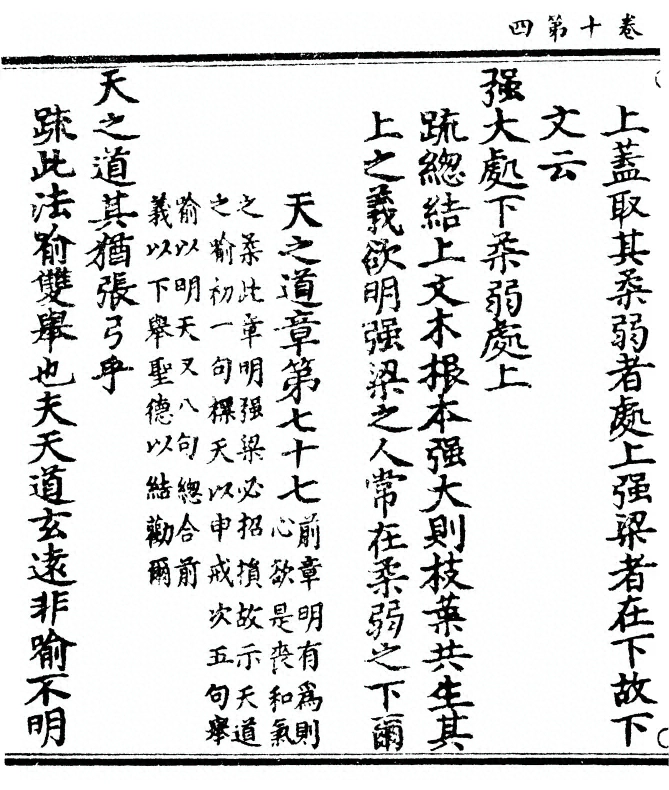 卷十第四
上蓋取其柔弱者處上强梁者在下故下
文云
强大處下柔弱處上
疏緫結上文木根本强大則枝葉共生其
上之義欲明强梁之人常在柔弱之下爾
天之道章第七十七
前章明有爲則
心欲是喪和氣
之柔此章明强梁必招損故示天道
之喻初一句標天以申戒次五句舉
喻以明天又八句緫合前
義以下舉聖德以結勸爾
天之道其猶張弓乎
疏此法喻雙舉也夫天道玄遠非喻不明